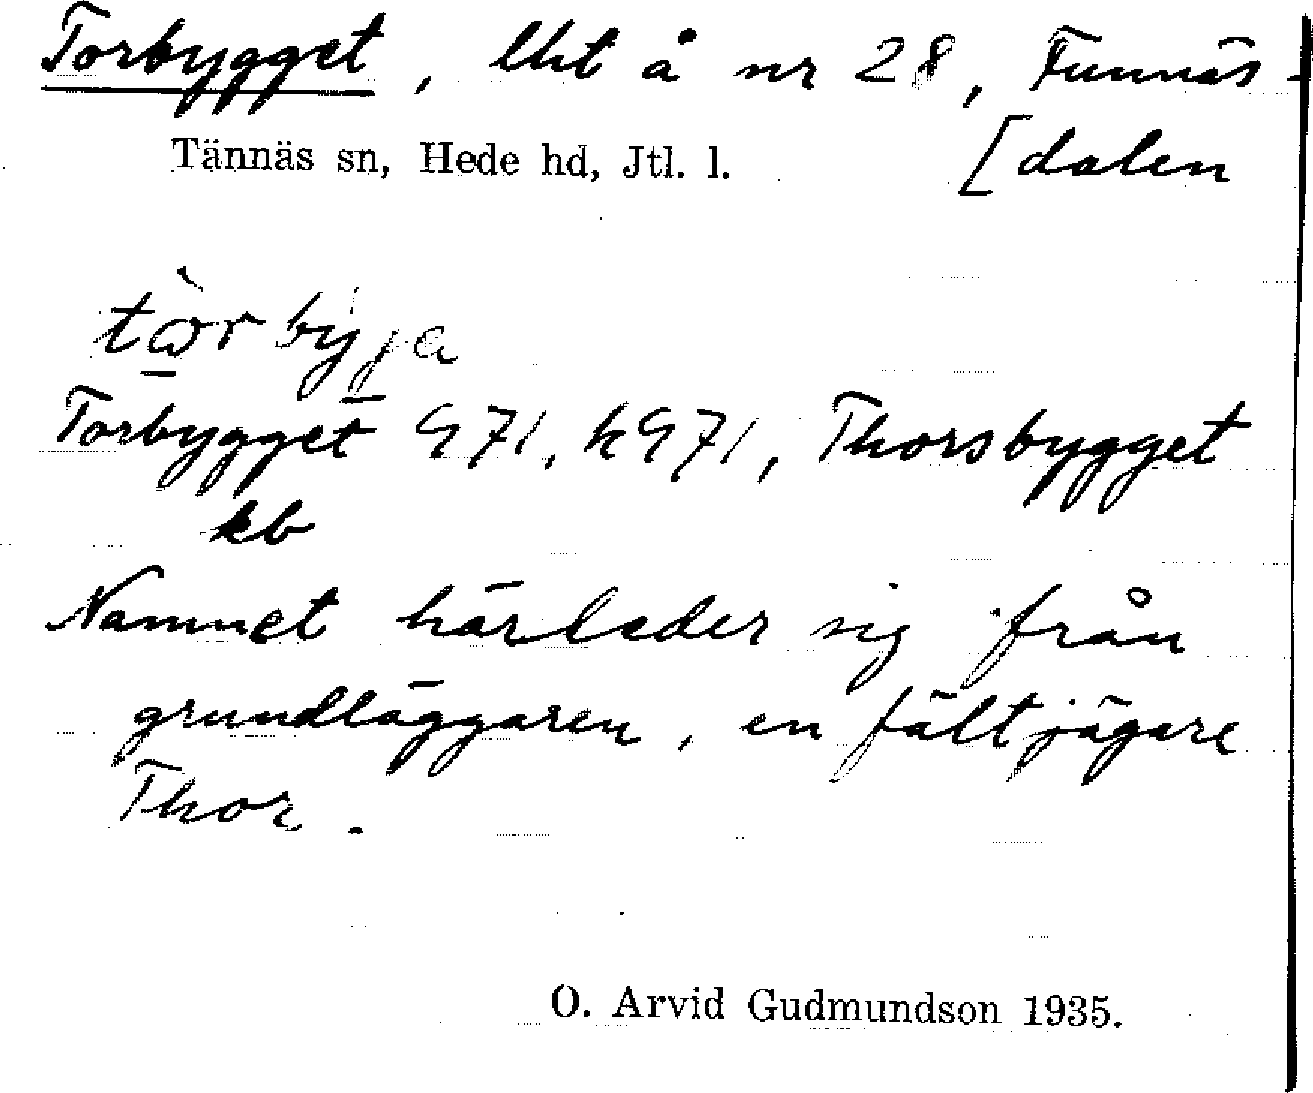 Torbygget, lht å nr 28, Funnäs-
[dalen
Tännäs sn, Hede hd, Jtl. l.
Torbygget G71, kG71, Thorsbygget
kb
Namnet härleder sig från
grundläggaren, en fältjägare
Thor.
O. Arvid Gudmundson 1935.